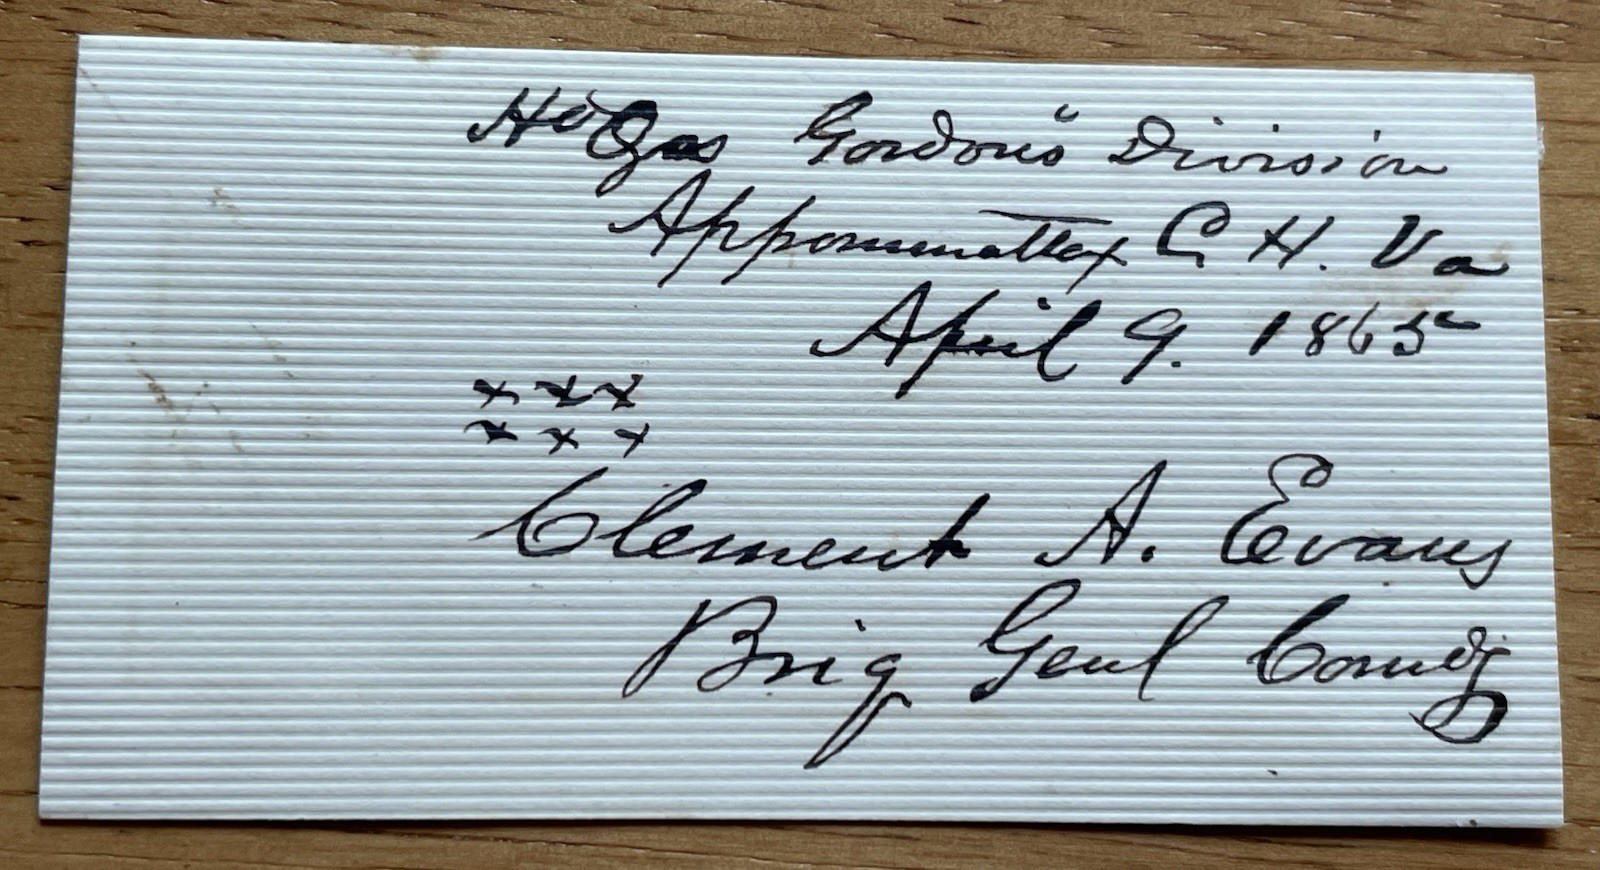 Hd Qrs Gordon's Division
Appomattox C. H. Va
April 9. 1865
x x x
x x x
Clement A. Evans
Brig Genl Comdg